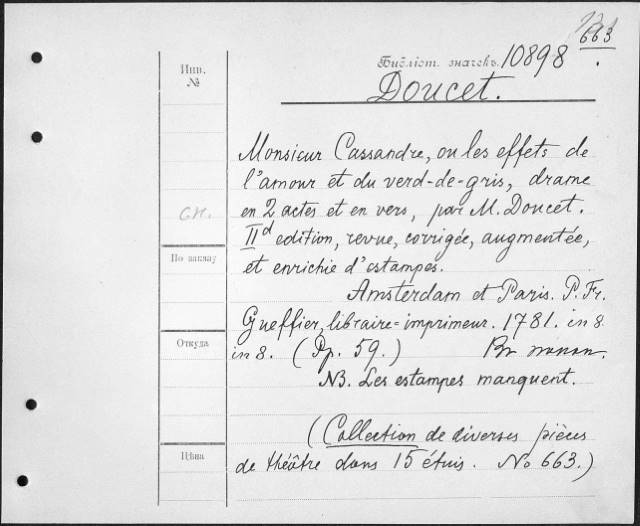 663
Библіот. значекъ. 10898
Doucet.
Инв.
№
Monsieur Cassandre, ou les effets de
l'amour et du verd-de-gris, drame
en 2 actes et en vers, par M. Doucet.
сп.
IId edition, revue, corrigée, augmentée,
По заказу
et enrichie d'estampes.
Amsterdam et Paris. P. Fr.
Gueffier, libraire=imprimeur. 1781. in 8.
Откуда
in 8. (Pp. 59.) Въ папкѣ.
NB. Les estampes manquent.
(Collection de diverses pièces
Цѣна
de théâtre dans 15 étuis. No 663.)